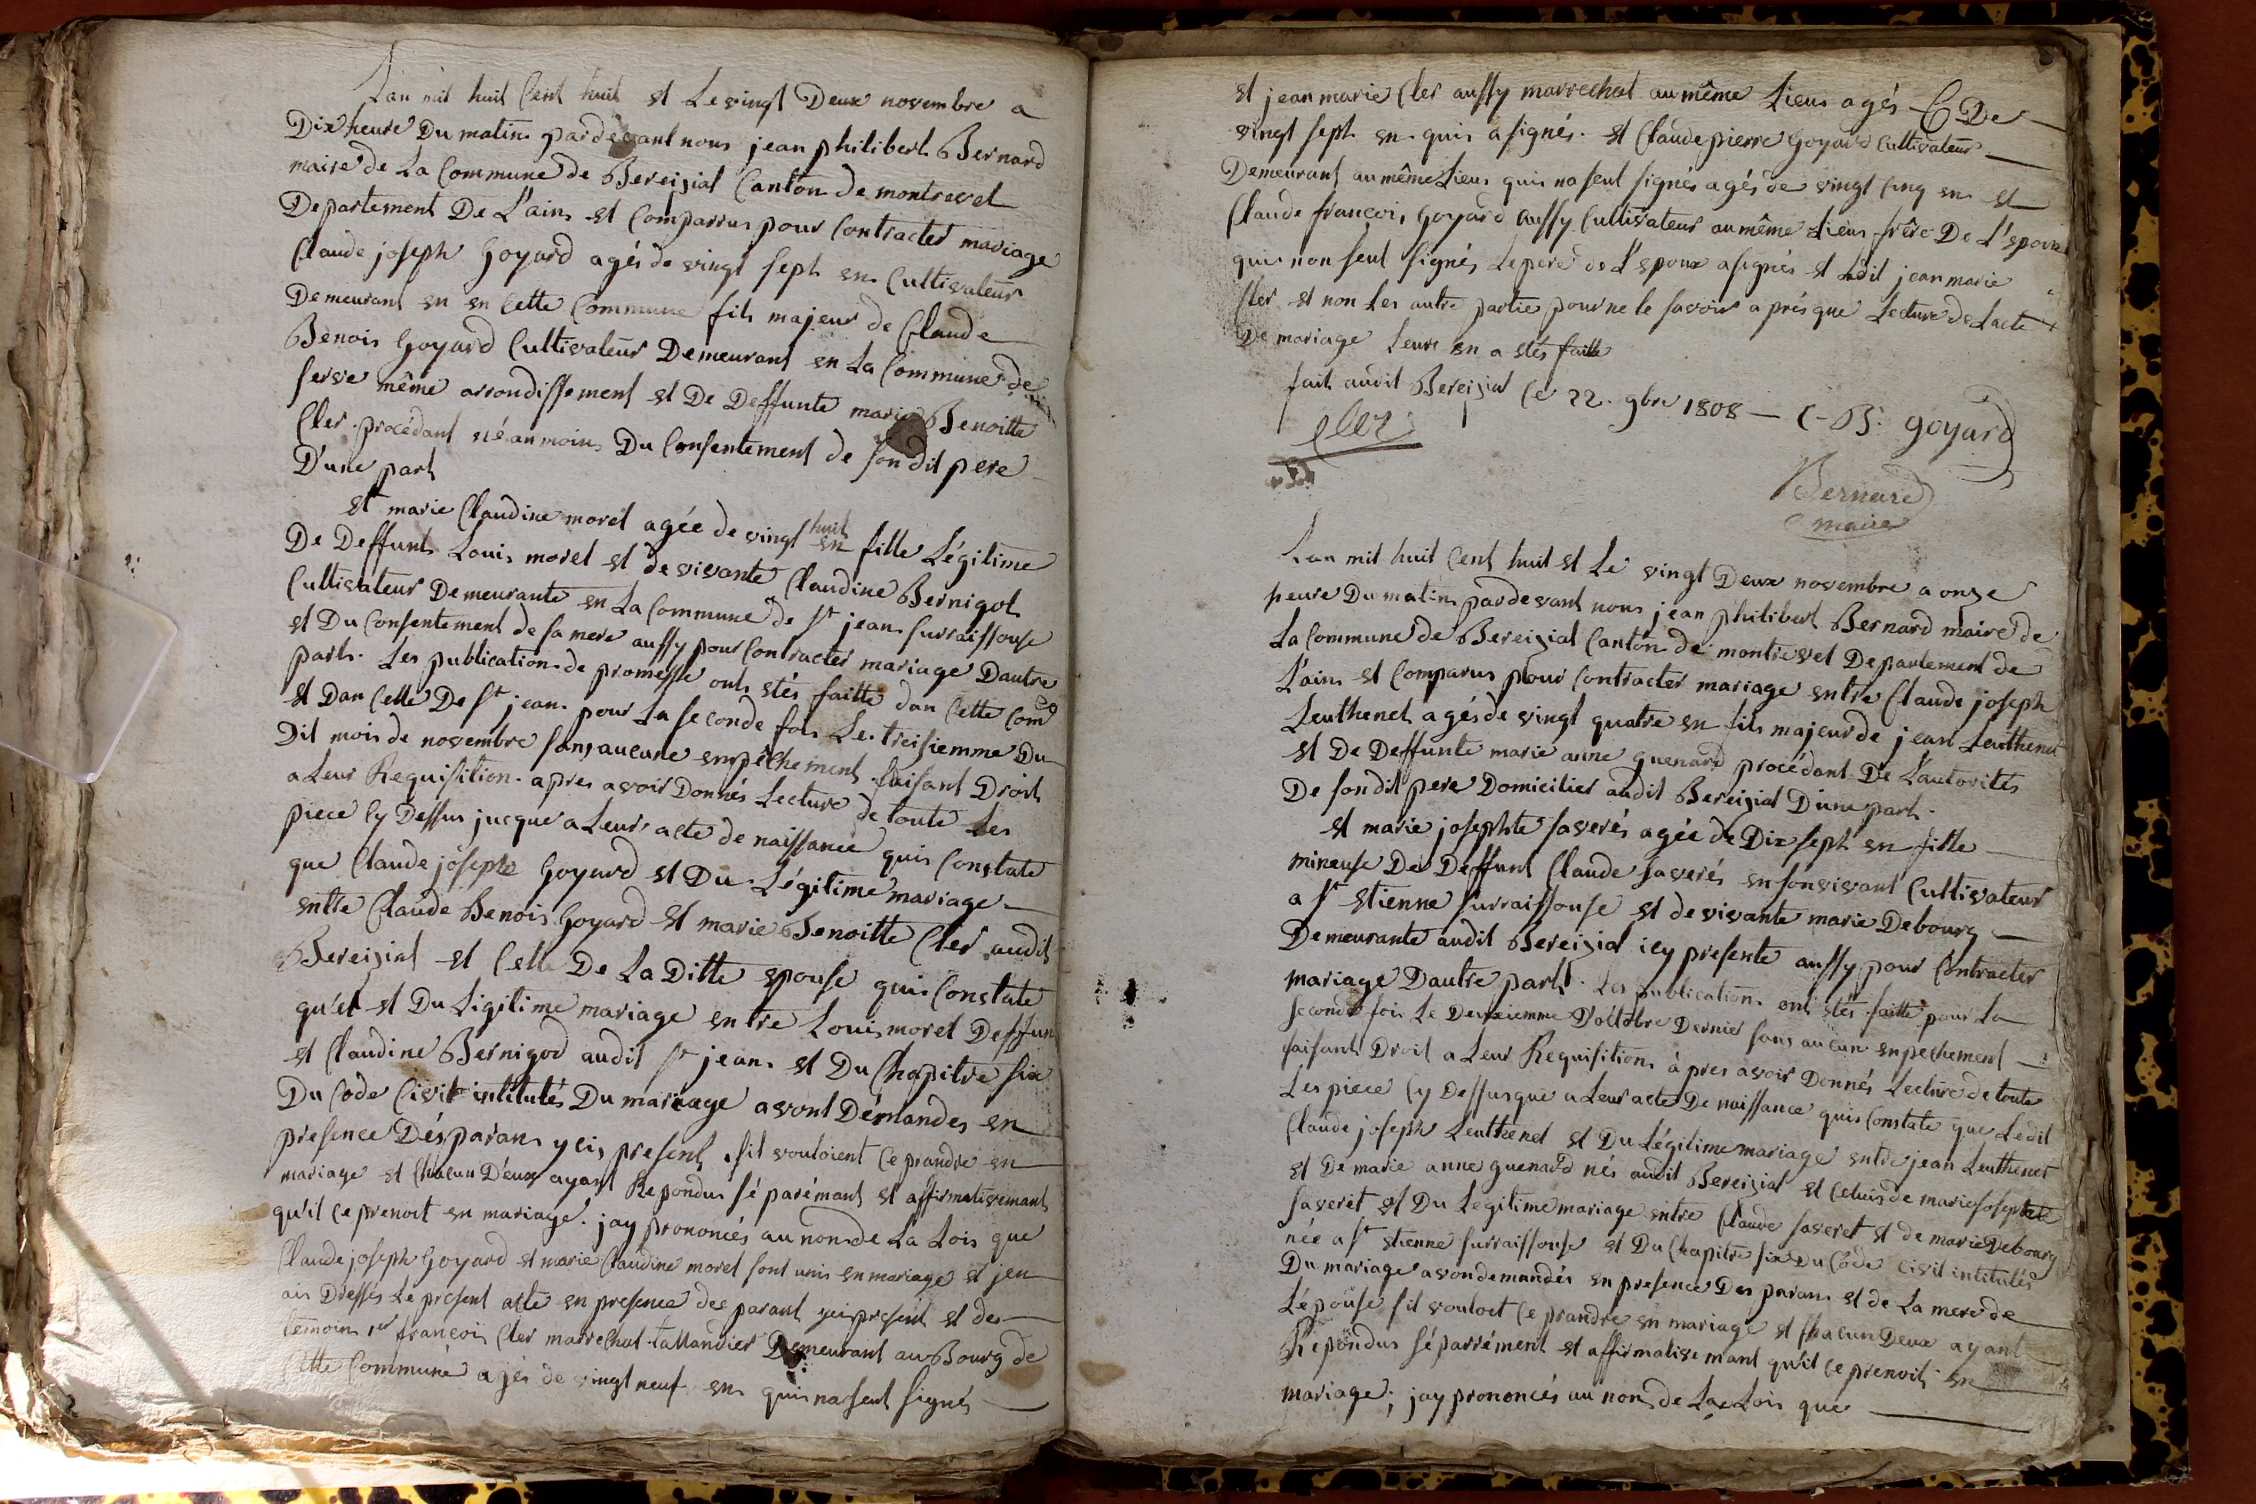 Lan mil huit Cent huit et Le vingt Deux novembre a
Dix heure Du matin pardevant nous jean philibert Bernard
maire de La Commune de Bereiziat Canton de montrevel
Departement De L'ain et Comparus pour Contracter mariage
Claude joseph Goyard agés de vingt sept en Cultivateur
Demeurant en en Cette Commune fils majeur de Claude
Benois Goyard Cultivateur Demeurant en La Commune de
Serve même arrondissement et De Deffunte marie Benoitte
Cler. procédant néanmoins Du Consentement de son dit pere
D'une part
et marie Claudine morel agée de vingt huit en fille Légitime
De Deffunt Louis morel et de vivante Claudine Bernigot
Cultivateur Demeurante en La Commune de St jean surraissouse
et Du Consentement de sa mere aussy pour Contracter mariage Dautre
part. Les publication de promesse onts étés faitte dan Cette Come
et Dan Celle De St jean pour La seconde fois Le treisiemme Du
Dit mois de novembre sans aucune empêchement faisant Droit
a Leur Requisition. apres avoir Donnés Lecture de toute Les
piece Cy Dessus jucque a Leur acte de naissance quis Constate
que Claude joseph Goyard et Du Légitime mariage
entre Claude Benois Goyard et marie Benoitte Cler audit
Bereiziat et Celle De La Ditte epouse quis Constate
qu'el et Du Ligitime mariage entre Louis morel Deffun
et Claudine Bernigod audit St jean et Du Chapitre six
Du Code Civil intitutés Du mariage avont Démandes en
presence Des paran yci present sil vouloient Ce prandre en
mariage et Chacun D'eux ayant Repondus séparémant et affirmativemant
qu'il Ce prenoit en mariage. jay prononcés au nom de La Lois que
Claude joseph Goyard et marie Claudine morel sont unis en mariage et jen
ais Dressés Le présent acte en presence des parant yci present et des
temoins 1er francois Cler marrechal tallandier Demeurant au Bourg de
Cette Commune agés de vingt neuf en quis na seut signés
et jean marie Cler aussy marrechal au même Lieux agés De
vingt sept en quis a signés. et Claude pierre Goyard Cultivateur
Demeurant au même Lieus quis na seut signés agés de vingt Cinq en et
Claude francois Goyard aussy Cultivateur au même Lieus frêre De L'epoux
quis non seut signés Le pere de L'epoux a signés et Ledit jean marie
Cler et non Les autre partie pour ne le savoir a prés que Lecture de Lacte
De mariage Leurs en a étés faitte
fait audit Bereiziat Ce 22. 9bre 1808 — C-B. goyard
Cler
Bernard
maire
Lan mil huit Cent huit et Le vingt Deux novembre a onze
heure Du matin pardevant nous jean philibert Bernard maire de
La Commune de Bereiziat Canton de montrevel Departement de
L'ain et Comparus pour Contracter mariage entre Claude joseph
Leuthenet agés de vingt quatre en fils majeur de jean Leuthenet
et De Deffunte marie anne guenard procédant De L'autorités
De son dit pere Domicilier audit Bereiziat D'une part.
et marie josephte saverés agée de Dix sept en fille
mineuse De Deffunt Claude saverés en son vivant Cultivateur
a St etienne surraissouse et de vivante marie Debourg
Demeurante audit Bereiziat icy presente aussy pour Contracter
mariage Dautre part. Les publication ont étés faitte pour La
seconde fois Le Deuxiemme D'octobre Dernier sans aucun enpechement
faisant Droit a Leur Requisition à pres avoir Donnés Lecture de toute
Les piece Cy Dessus que a Leur acte De naissance quis Constate que Ledit
Claude joseph Leuthenet et Du Légitime mariage entre jean Leuthenet
et De marie anne guenard nés audit Bereiziat et Celuis de marie josephte
saveret et Du Legitime mariage entre Claude saveret et de marie Debourg
née a St etienne surraissouse et Du Chapitre six Du Code Civil intitulés
Du mariage avon demandés en presence Des paran et de La mere de
L'épouse sil vouloet Ce prandre en mariage et Chacun Deux ayant
Repondus séparrément et affirmativemant qu'il Ce prenoit en
mariage; jay prononcés au nom de La Lois que